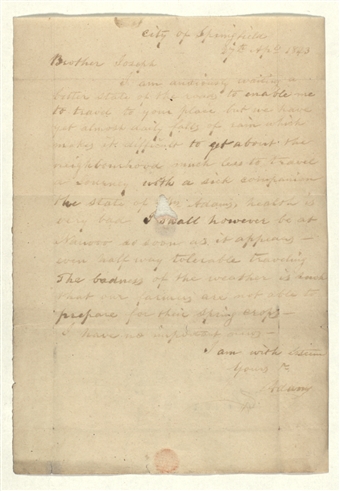 City of Springfield
27th Apl. 1843
Brother Joseph
I am anxiously waiting a
better state of the roads to enable me
to travel to your place but we have
yet almost daily falls of rain which
makes it difficult to get about the
neighbourhood much less to travel
a Journey with a sick companion
the state of Mrs Adams, health is
very bad I shall however be at
Nauvoo as soon as it appears
even half way tolerable traveling
The badness of the weather is such
that our farmers are not able to
prepare for their spring crops
I have no important news
I am with esteem
Yours &c
Adams